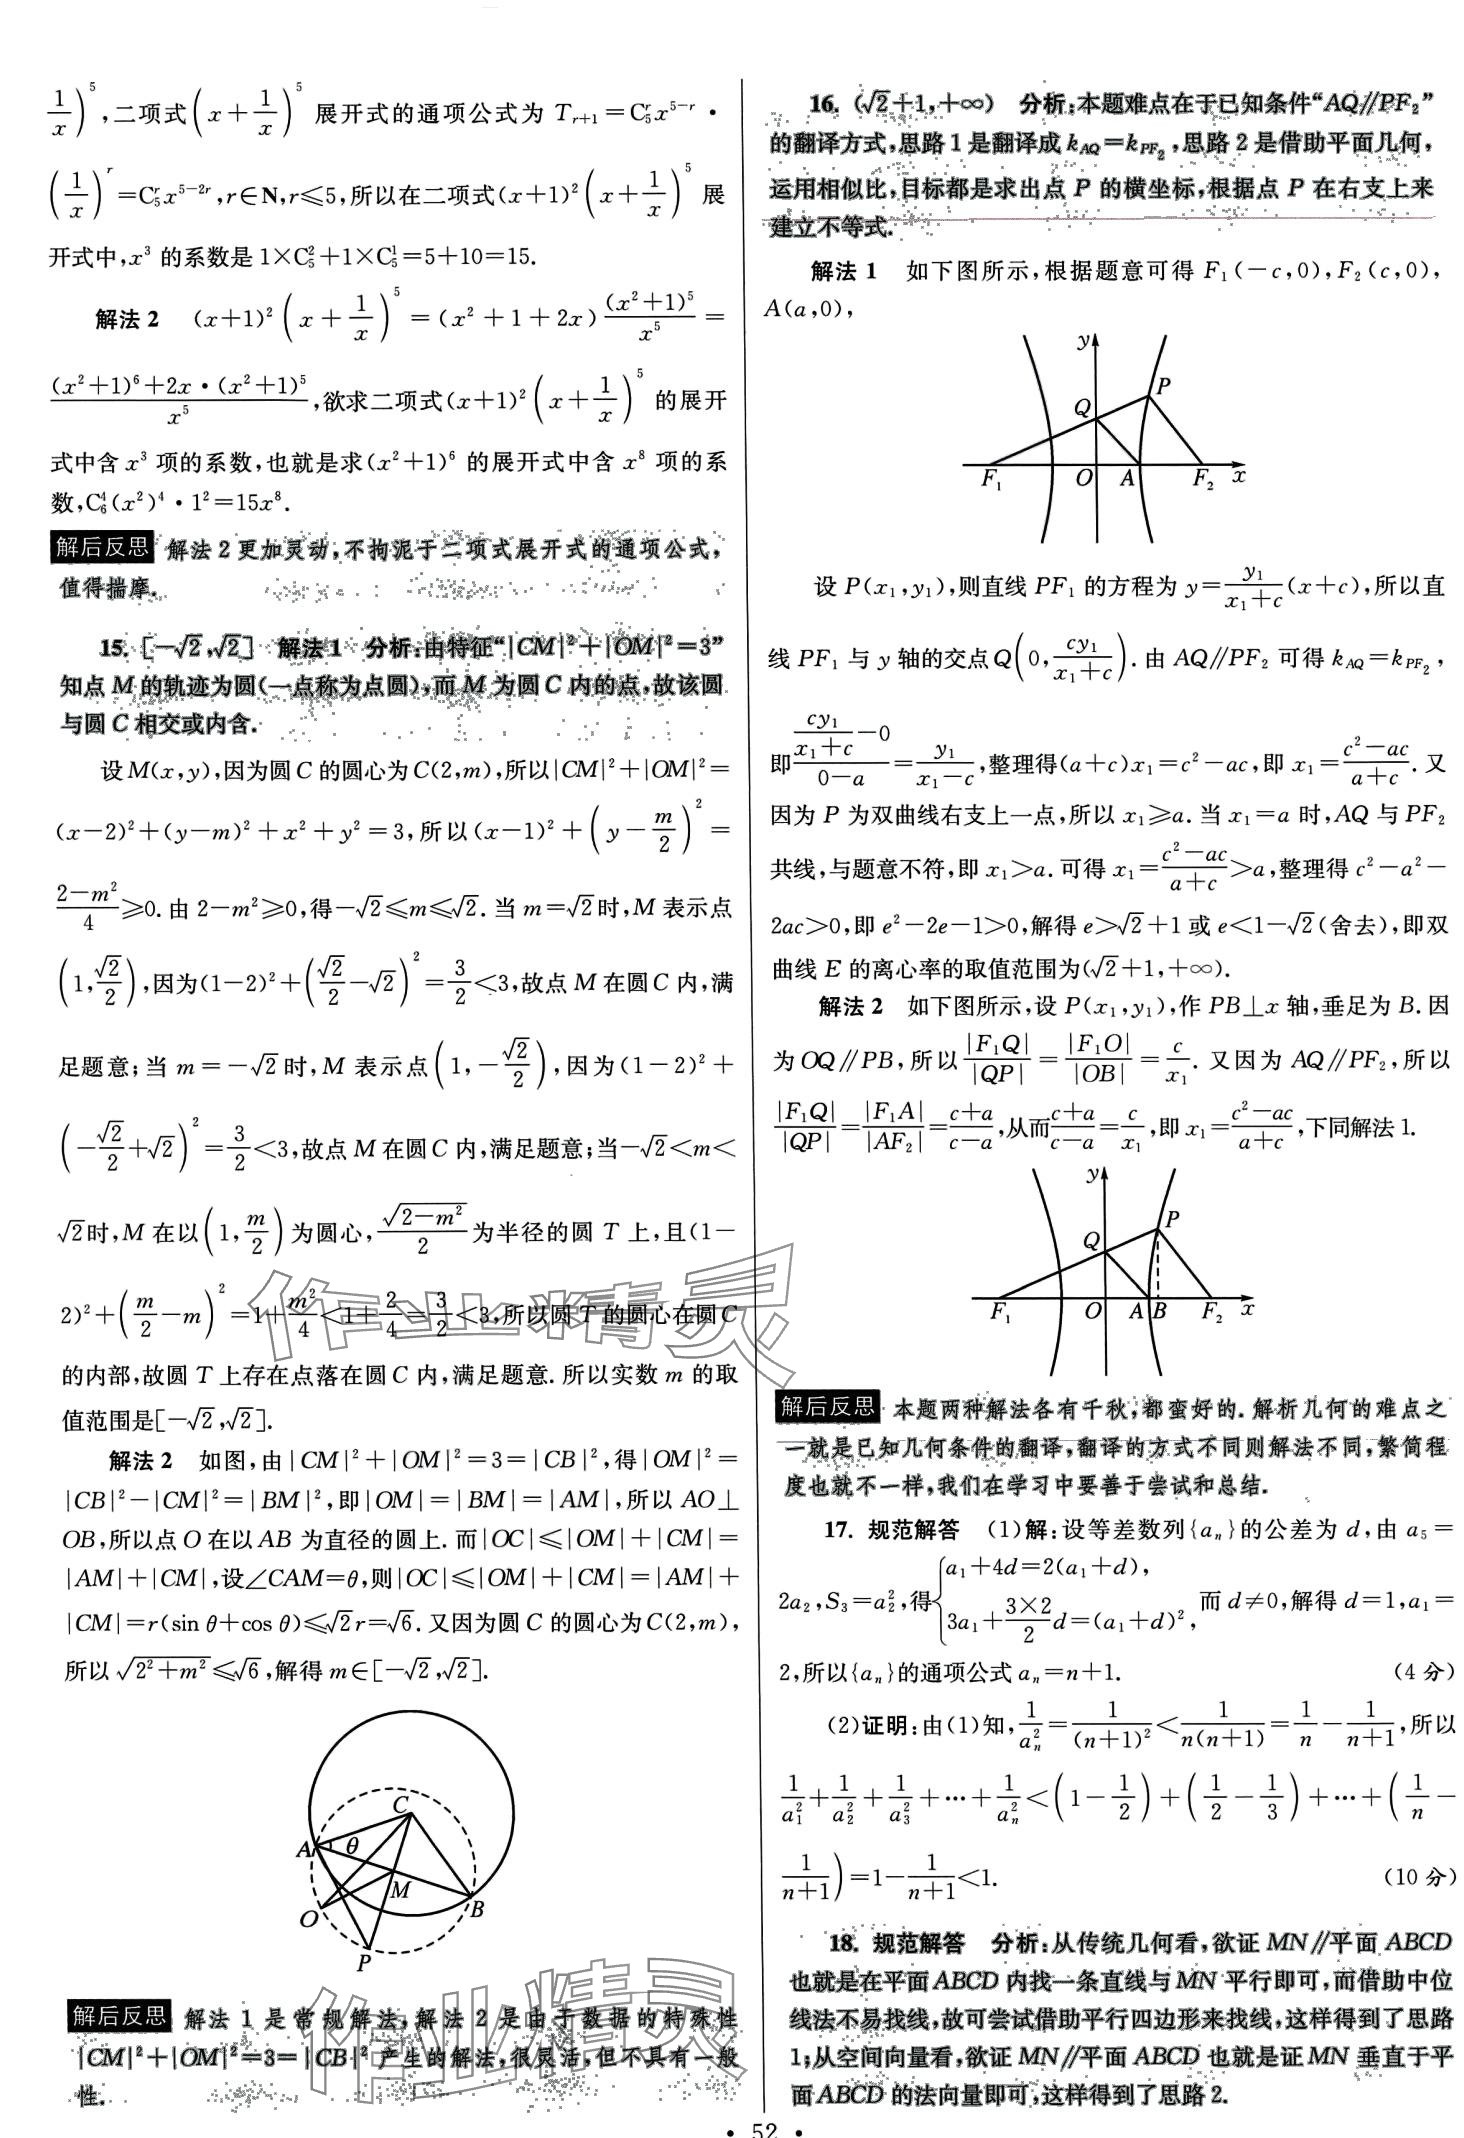 1/x)^5,二项式(x+1/x)^5 展开式的通项公式为 T_{r+1}=C_5^r x^{5-r}·
(1/x)^r=C_5^r x^{5-2r},r∈N,r≤5,所以在二项式(x+1)^2(x+1/x)^5 展
开式中,x^3 的系数是 1×C_5^2+1×C_5^1=5+10=15.
解法 2 (x+1)^2(x+1/x)^5=(x^2+1+2x)(x^2+1)^5/x^5=
((x^2+1)^6+2x·(x^2+1)^5)/x^5,欲求二项式(x+1)^2(x+1/x)^5 的展开
式中含 x^3 项的系数,也就是求(x^2+1)^6 的展开式中含 x^8 项的系
数,C_6^4(x^2)^4·1^2=15x^8.
解后反思 解法 2 更加灵动,不拘泥于二项式展开式的通项公式,
值得揣摩.
15. [-√2,√2] 解法 1 分析:由特征“|CM|^2+|OM|^2=3”
知点 M 的轨迹为圆(一点称为点圆),而 M 为圆 C 内的点,故该圆
与圆 C 相交或内含.
设 M(x,y),因为圆 C 的圆心为 C(2,m),所以|CM|^2+|OM|^2=
(x-2)^2+(y-m)^2+x^2+y^2=3,所以(x-1)^2+(y-m/2)^2=
(2-m^2)/4≥0.由 2-m^2≥0,得-√2≤m≤√2.当 m=√2时,M 表示点
(1,√2/2),因为(1-2)^2+(√2/2-√2)^2=3/2<3,故点 M 在圆 C 内,满
足题意;当 m=-√2时,M 表示点(1,-√2/2),因为(1-2)^2+
(-√2/2+√2)^2=3/2<3,故点 M 在圆 C 内,满足题意;当-√2<m<
√2时,M 在以(1,m/2)为圆心,√(2-m^2)/2为半径的圆 T 上,且(1-
2)^2+(m/2-m)^2=1+m^2/4<1+2/4=3/2<3,所以圆 T 的圆心在圆 C
的内部,故圆 T 上存在点落在圆 C 内,满足题意.所以实数 m 的取
值范围是[-√2,√2].
解法 2 如图,由|CM|^2+|OM|^2=3=|CB|^2,得|OM|^2=
|CB|^2-|CM|^2=|BM|^2,即|OM|=|BM|=|AM|,所以 AO⊥
OB,所以点 O 在以 AB 为直径的圆上.而|OC|≤|OM|+|CM|=
|AM|+|CM|,设∠CAM=θ,则|OC|≤|OM|+|CM|=|AM|+
|CM|=r(sin θ+cos θ)≤√2r=√6.又因为圆 C 的圆心为 C(2,m),
所以√(2^2+m^2)≤√6,解得 m∈[-√2,√2].
C
A θ
M
O B
P
解后反思 解法 1 是常规解法,解法 2 是由于数据的特殊性
|CM|^2+|OM|^2=3=|CB|^2 产生的解法,很灵活,但不具有一般
性.
16. (√2+1,+∞) 分析:本题难点在于已知条件“AQ∥PF_2”
的翻译方式,思路 1 是翻译成 k_{AQ}=k_{PF_2},思路 2 是借助平面几何,
运用相似比,目标都是求出点 P 的横坐标,根据点 P 在右支上来
建立不等式.
解法 1 如下图所示,根据题意可得 F_1(-c,0),F_2(c,0),
A(a,0),
y
P
Q
F_1 O A F_2 x
设 P(x_1,y_1),则直线 PF_1 的方程为 y=y_1/(x_1+c)(x+c),所以直
线 PF_1 与 y 轴的交点 Q(0,cy_1/(x_1+c)).由 AQ∥PF_2 可得 k_{AQ}=k_{PF_2},
即(cy_1/(x_1+c)-0)/(0-a)=y_1/(x_1-c),整理得(a+c)x_1=c^2-ac,即 x_1=(c^2-ac)/(a+c).又
因为 P 为双曲线右支上一点,所以 x_1≥a.当 x_1=a 时,AQ 与 PF_2
共线,与题意不符,即 x_1>a.可得 x_1=(c^2-ac)/(a+c)>a,整理得 c^2-a^2-
2ac>0,即 e^2-2e-1>0,解得 e>√2+1 或 e<1-√2(舍去),即双
曲线 E 的离心率的取值范围为(√2+1,+∞).
解法 2 如下图所示,设 P(x_1,y_1),作 PB⊥x 轴,垂足为 B.因
为 OQ∥PB,所以|F_1Q|/|QP|=|F_1O|/|OB|=c/x_1.又因为 AQ∥PF_2,所以
|F_1Q|/|QP|=|F_1A|/|AF_2|=(c+a)/(c-a),从而(c+a)/(c-a)=c/x_1,即 x_1=(c^2-ac)/(a+c),下同解法 1.
y
P
Q
F_1 O A B F_2 x
解后反思 本题两种解法各有千秋,都蛮好的.解析几何的难点之
一就是已知几何条件的翻译,翻译的方式不同则解法不同,繁简程
度也就不一样,我们在学习中要善于尝试和总结.
17. 规范解答 (1)解:设等差数列{a_n}的公差为 d,由 a_5=
2a_2,S_3=a_2^2,得{a_1+4d=2(a_1+d), 3a_1+(3×2)/2 d=(a_1+d)^2, 而 d≠0,解得 d=1,a_1=
2,所以{a_n}的通项公式 a_n=n+1. (4 分)
(2)证明:由(1)知,1/a_n^2=1/(n+1)^2<1/(n(n+1))=1/n-1/(n+1),所以
1/a_1^2+1/a_2^2+1/a_3^2+…+1/a_n^2<(1-1/2)+(1/2-1/3)+…+(1/n-
1/(n+1))=1-1/(n+1)<1. (10 分)
18. 规范解答 分析:从传统几何看,欲证 MN∥平面 ABCD
也就是在平面 ABCD 内找一条直线与 MN 平行即可,而借助中位
线法不易找线,故可尝试借助平行四边形来找线,这样得到了思路
1;从空间向量看,欲证 MN∥平面 ABCD 也就是证 MN 垂直于平
面 ABCD 的法向量即可,这样得到了思路 2.
作业精灵
作业精灵
· 52 ·